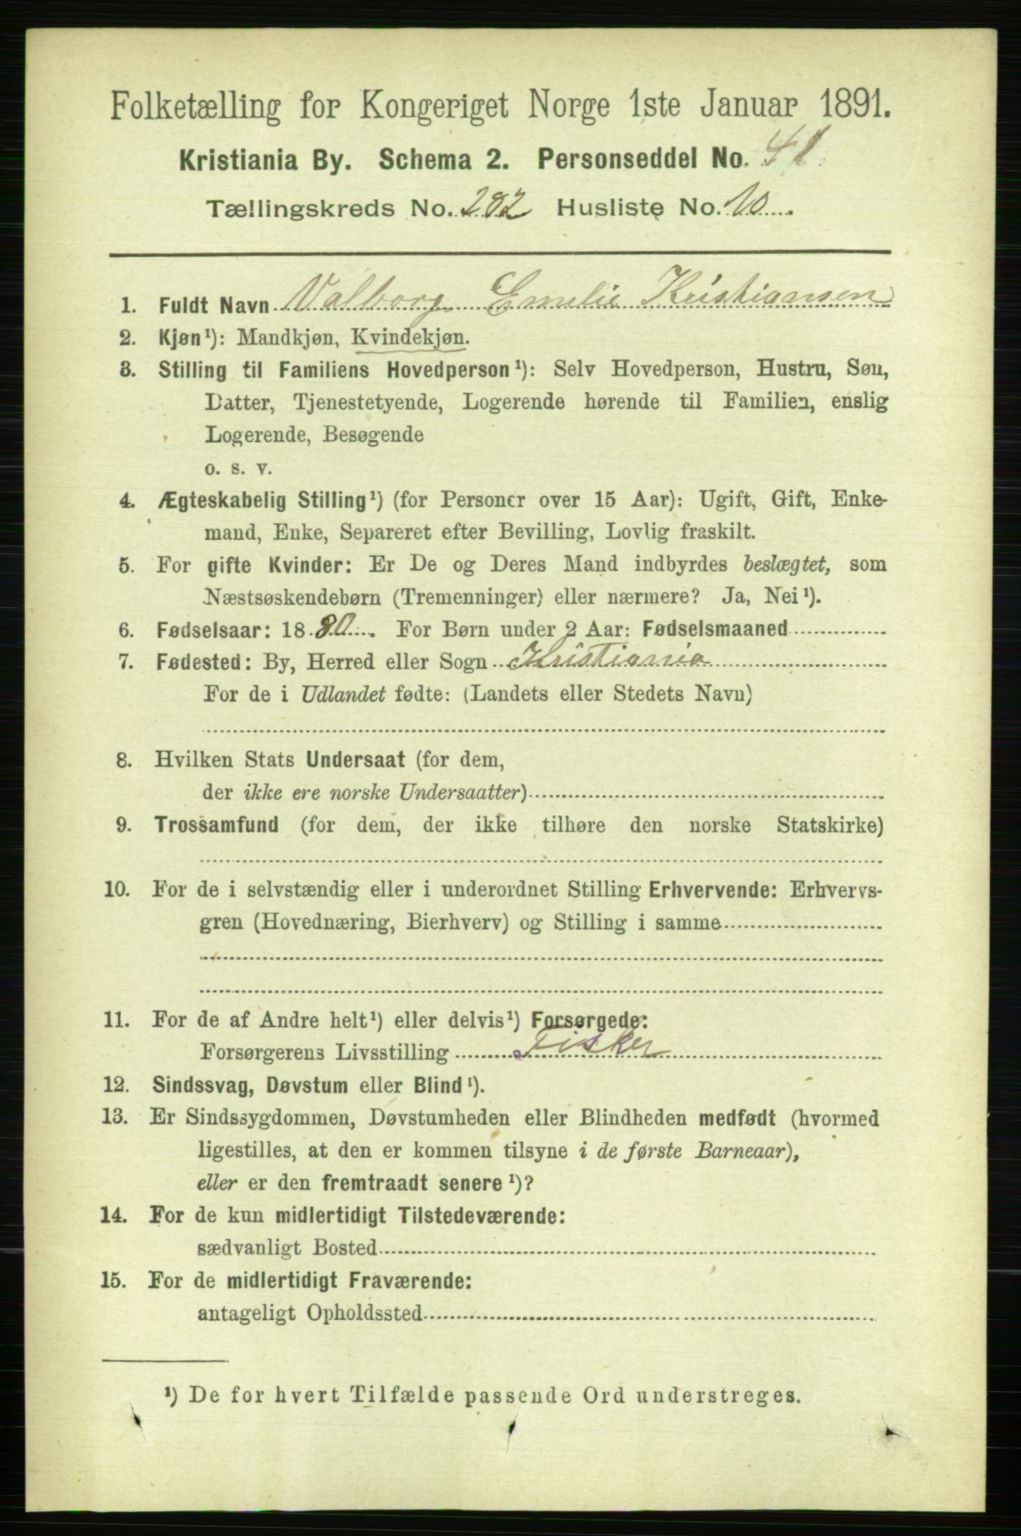 Folketælling for Kongeriget Norge 1ste Januar 1891.
Kristiania By. Schema 2. Personseddel No. 41.
Tællingskreds No. 282 Husliste No. 10.
1. Fuldt Navn Valborg Emelie Kristiansen
2. Kjøn¹): Mandkjøn, Kvindekjøn.
3. Stilling til Familiens Hovedperson¹): Selv Hovedperson, Hustru, Søn,
Datter, Tjenestetyende, Logerende hørende til Familien, enslig
Logerende, Besøgende
o. s. v.
4. Ægteskabelig Stilling¹) (for Personer over 15 Aar): Ugift, Gift, Enke-
mand, Enke, Separeret efter Bevilling, Lovlig fraskilt.
5. For gifte Kvinder: Er De og Deres Mand indbyrdes beslægtet, som
Næstsøskendebørn (Tremenninger) eller nærmere? Ja, Nei¹).
6. Fødselsaar: 1880. For Børn under 2 Aar: Fødselsmaaned
7. Fødested: By, Herred eller Sogn Kristiania
For de i Udlandet fødte: (Landets eller Stedets Navn)
8. Hvilken Stats Undersaat (for dem,
der ikke ere norske Undersaatter)
9. Trossamfund (for dem, der ikke tilhøre den norske Statskirke)
10. For de i selvstændig eller i underordnet Stilling Erhvervende: Erhvervs-
gren (Hovednæring, Bierhverv) og Stilling i samme
11. For de af Andre helt¹) eller delvis¹) Forsørgede:
Forsørgerens Livsstilling Fisker
12. Sindssvag, Døvstum eller Blind¹).
13. Er Sindssygdommen, Døvstumheden eller Blindheden medfødt (hvormed
ligestilles, at den er kommen tilsyne i de første Barneaar),
eller er den fremtraadt senere¹)?
14. For de kun midlertidigt Tilstedeværende:
sædvanligt Bosted
15. For de midlertidigt Fraværende:
antageligt Opholdssted
¹) De for hvert Tilfælde passende Ord understreges.